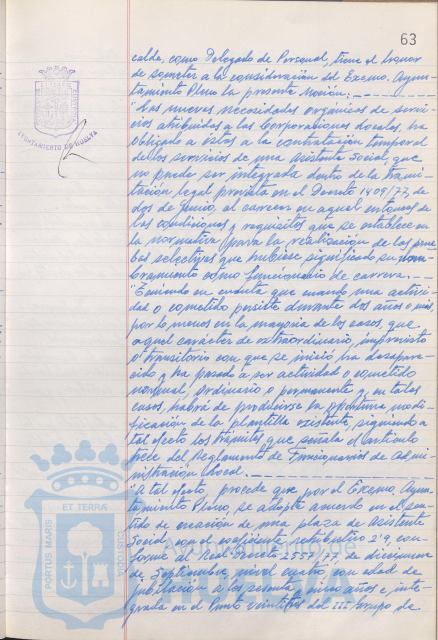 63
calde, como Delegado de Personal, tiene el honor
de someter a la consideración del Excmo. Ayun-
tamiento Pleno la presente Moción:
"Las nuevas necesidades orgánicas de servi-
cios atribuidas a las Corporaciones Locales, ha
obligado a éstas a la contratación temporal
de los servicios de una Asistenta Social, que
no puede ser integrada dentro de la trami-
tación legal prevista en el Decreto 1409/77, de
dos de junio, al carecer en aquel entonces de
las condiciones y requisitos que se establece en
la normativa para la realización de las prue
bas selectivas que hubiese significado su nom-
bramiento como funcionario de carrera.
"Teniendo en cuenta que cuando una activi-
dad o cometido persiste durante dos años o más,
por lo menos en la mayoría de los casos, que
aquel carácter de extraordinario, imprevisto
o transitorio con que se inició ha desapare-
cido y ha pasado a ser actividad o cometido
normal, ordinario o permanente y en tales
casos, habrá de producirse la oportuna modi-
ficación de la plantilla existente, siguiendo a
tal efecto los trámites que señala el artículo
trece del Reglamento de Funcionarios de Admi-
nistración Local.
"A tal efecto, procede que por el Excmo. Ayun-
tamiento Pleno, se adopte acuerdo en el sen-
tido de creación de una plaza de Asistente
Social, con el coeficiente retributivo 2'9, con-
forme al Real Decreto 2557/77, de diecinueve
de Septiembre, nivel cuatro, con edad de
jubilación a los sesenta y cinco años e inte-
grada en el Punto veintitrés del III Grupo de
AYUNTAMIENTO DE HUELVA
PORTUS MARIS
ET TERRAE
CUSTODIA